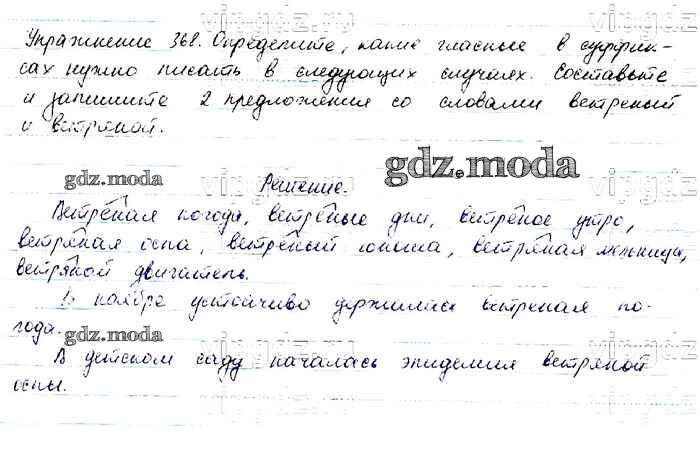 Упражнение 368. Определите, какие гласные в суффик-
сах нужно писать в следующих случаях. Составьте
и запишите 2 предложения со словами ветреный
и ветряной.
gdz.moda
gdz.moda Решение.
Ветреная погода, ветреные дни, ветреное утро,
ветряная оспа, ветреный юноша, ветряная мельница,
ветряной двигатель.
В ноябре устойчиво держалась ветреная по-
года.
gdz.moda
В детском саду началась эпидемия ветряной
оспы.
gdz.moda